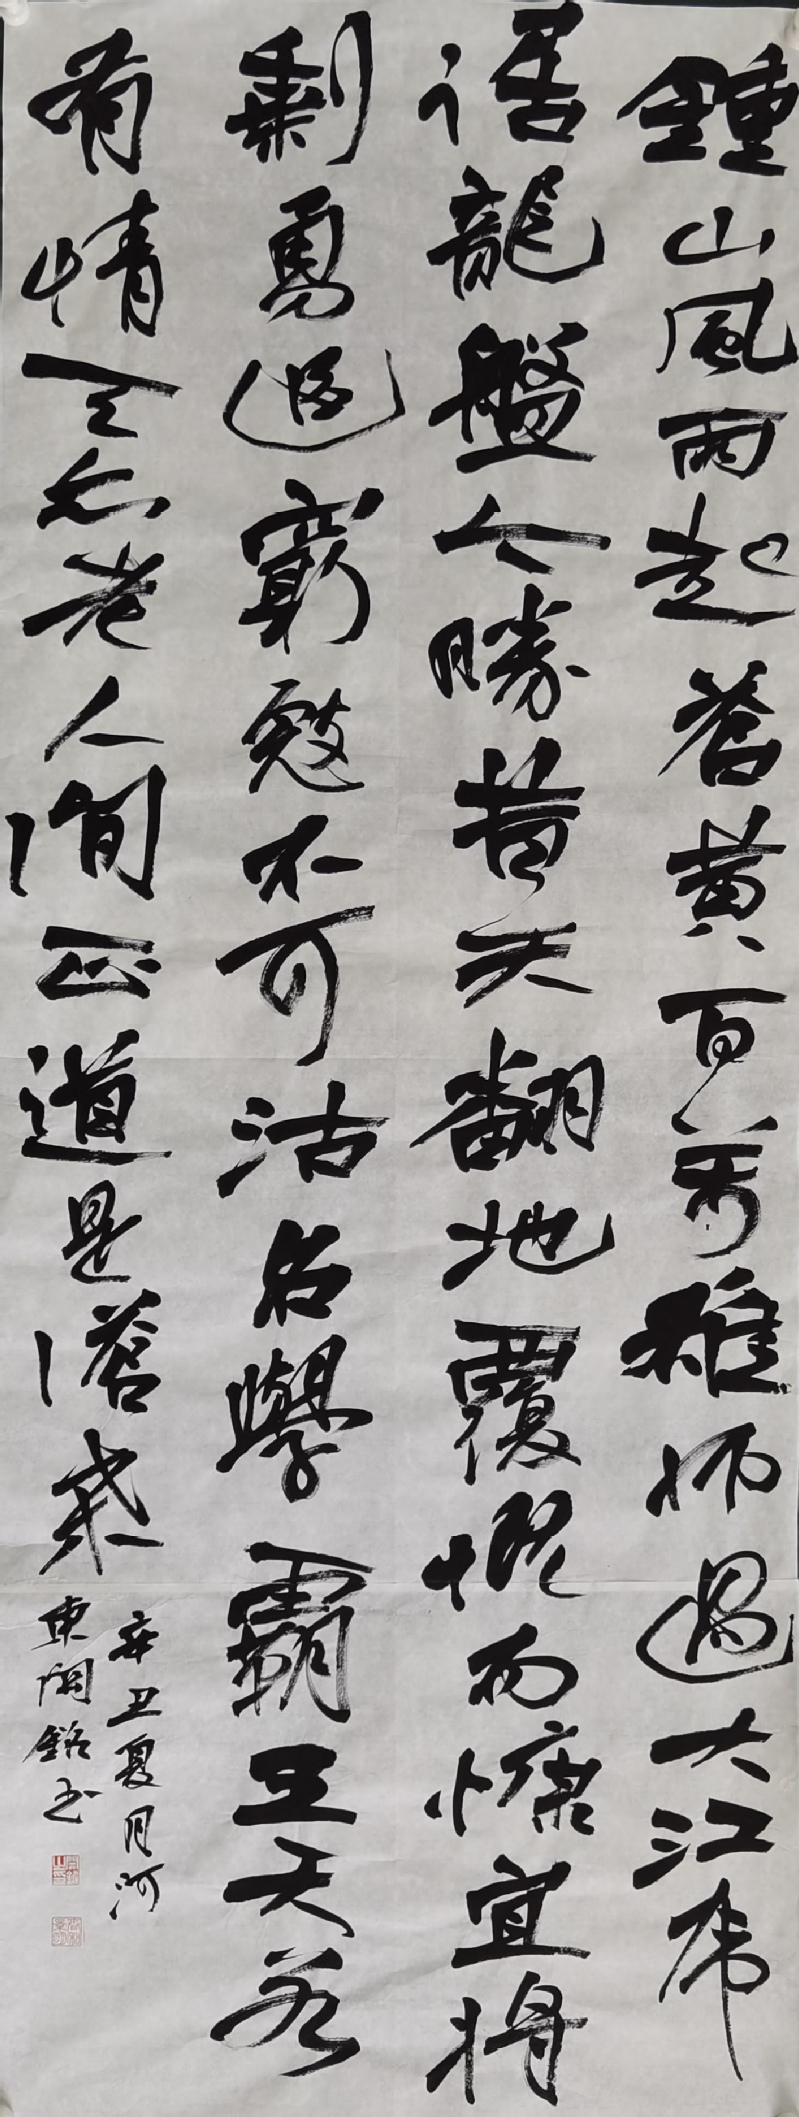 鍾山風雨起蒼黃百萬雄師過大江虎
踞龍盤今勝昔天翻地覆慨而慷宜將
剩勇追窮寇不可沽名學霸王天若
有情天亦老人間正道是滄桑
辛丑夏月河
東銘书